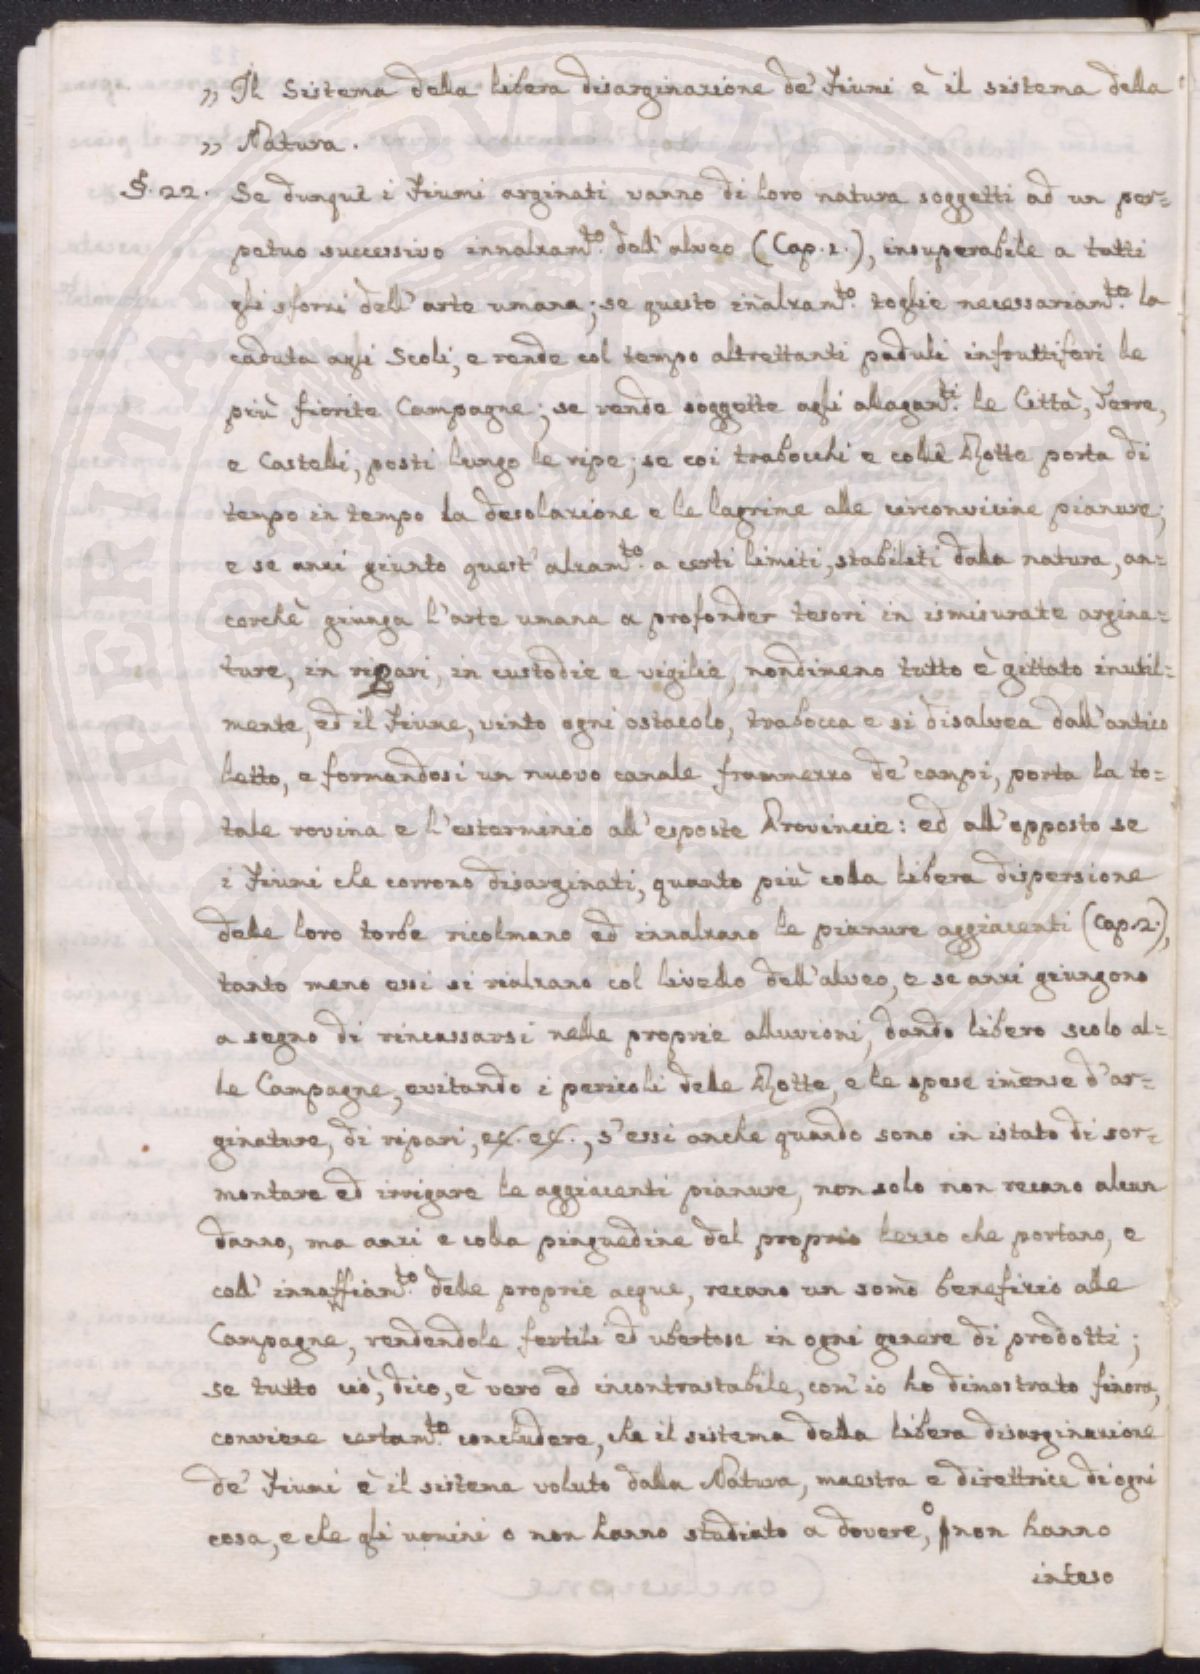 „ Il Sistema della libera disarginazione de' Fiumi è il sistema della
„ Natura.
§. 22. Se dunque i Fiumi arginati vanno di loro natura soggetti ad un per=
petuo successivo innalzam.to dell'alveo (Cap. 1.), insuperabile a tutti
gli sforzi dell'arte umana; se questo inalzam.to toglie necessariam.te la
caduta agli Scoli, e rende col tempo altrettanti paduli infruttiferi le
più fiorite Campagne; se rende soggette agli allagam.ti le Città, Terre,
e Castelli, posti lungo le ripe; se coi trabocchi e colle Rotte porta di
tempo in tempo la desolazione e le lagrime alle circonvicine pianure;
e se anzi giunto quest'alzam.to a certi limiti, stabiliti dalla natura, an=
corchè giunga l'arte umana a profonder tesori in ismisurate argina=
ture, in ripari, in custodie e vigilie, nondimeno tutto è gittato inutil=
mente, ed il Fiume, vinto ogni ostacolo, trabocca e si disalvea dall'antico
letto, e formandosi un nuovo canale frammezzo de' campi, porta la to=
tale rovina e l'esterminio all'esposte Provincie: ed all'opposto se
i Fiumi che corrono disarginati, quanto più colla libera dispersione
delle loro torbe ricolmano ed innalzano le pianure aggiacenti (Cap. 2.),
tanto meno essi si rialzano col livello dell'alveo, e se anzi giungono
a segno di rincassarsi nelle proprie alluvioni, dando libero scolo al=
le Campagne, evitando i pericoli delle Rotte, e le spese imense d'ar=
ginature, di ripari, ec. ec., s'essi anche quando sono in istato di sor=
montare ed irrigare le aggiacenti pianure, non solo non recano alcun
danno, ma anzi e colla pinguedine del proprio lezzo che portano, e
coll' innaffiam.to delle proprie acque, recano un somo benefizio alle
Campagne, rendendole fertili ed ubertose in ogni genere di prodotti;
se tutto ciò, dico, è vero ed incontrastabile, com' io ho dimostrato finora,
conviene certam.te concludere, che il sistema della libera disarginazione
de' Fiumi è il sistema voluto dalla Natura, maestra e direttrice di ogni
cosa, e che gli uomini o non hanno studiato a dovere, o non hanno
inteso